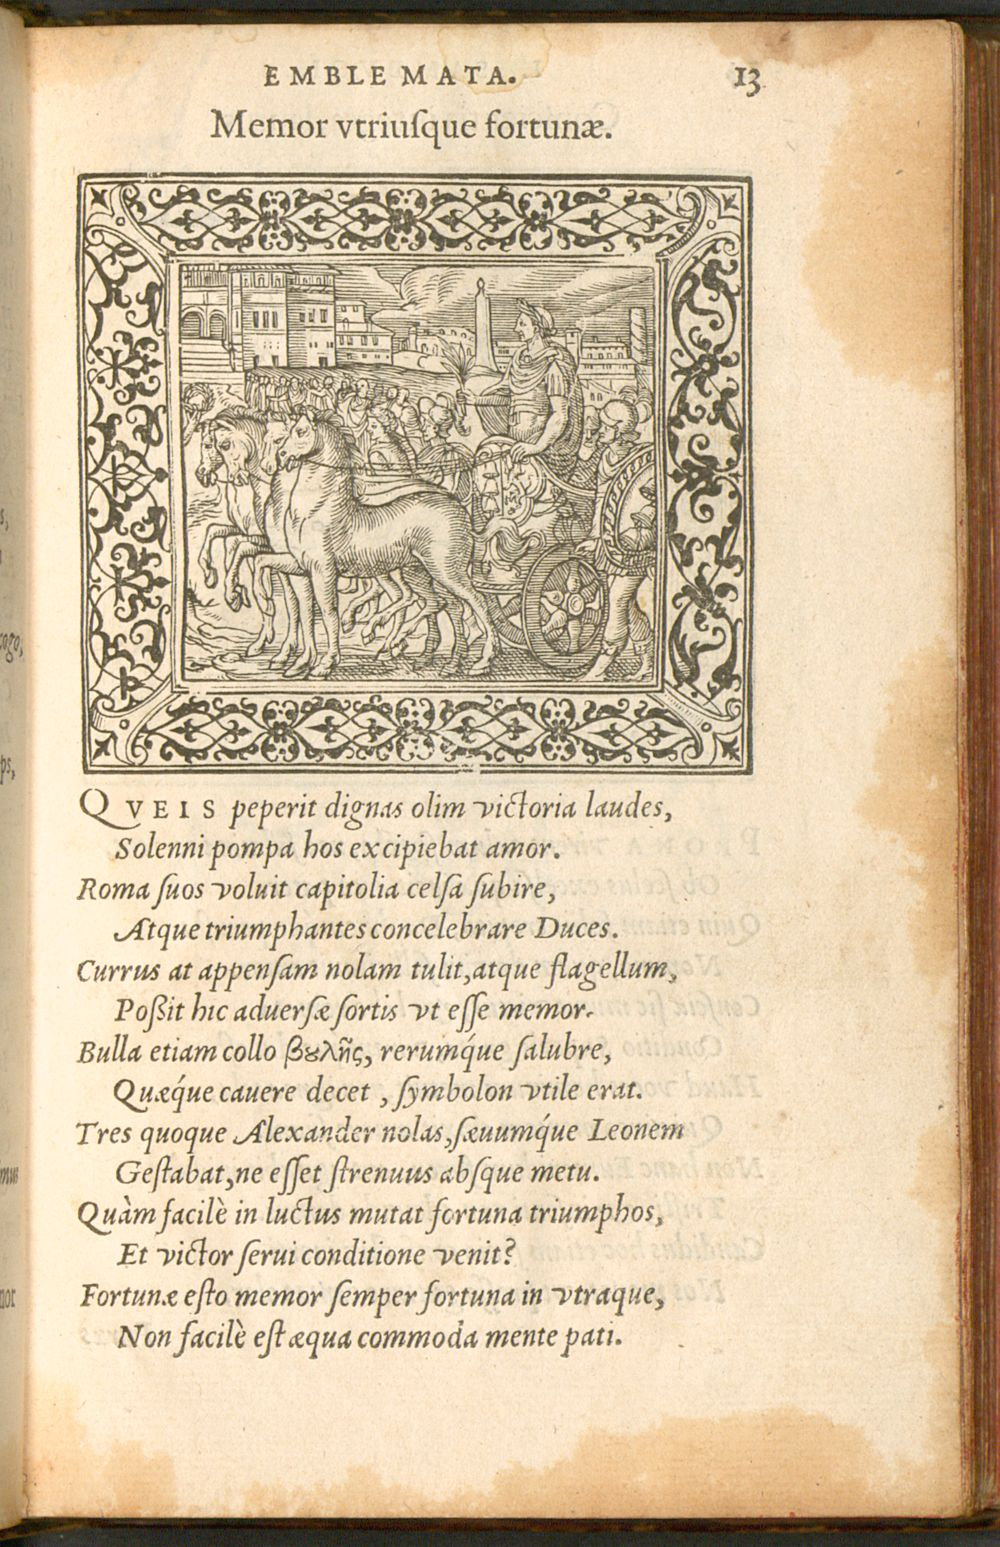 EMBLEMATA. 13
Memor vtriuſque fortunæ.
QVEIS peperit dignas olim victoria laudes,
Solenni pompa hos excipiebat amor.
Roma ſuos voluit capitolia celſa ſubire,
Atque triumphantes concelebrare Duces.
Currus at appenſam nolam tulit, atque flagellum,
Poßit hic aduerſæ ſortis vt eſſe memor.
Bulla etiam collo βȣλῆς, rerumq́ue ſalubre,
Quæq́ue cauere decet, ſymbolon vtile erat.
Tres quoque Alexander nolas, ſæuumq́ue Leonem
Geſtabat, ne eſſet ſtrenuus abſque metu.
Quàm facilè in luctus mutat fortuna triumphos,
Et victor ſerui conditione venit?
Fortunæ eſto memor ſemper fortuna in vtraque,
Non facilè eſt æqua commoda mente pati.